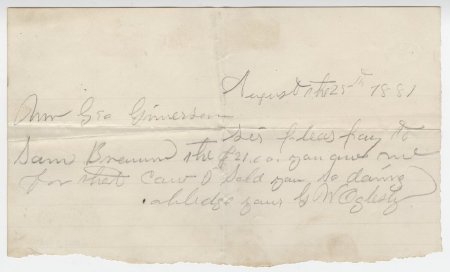 August the 25th 1881
Mr Geo
Sir pleas pay to
Sam the $21.00 you give me
for that Cow I Sold you so doing
oblidge your G W Oglesby